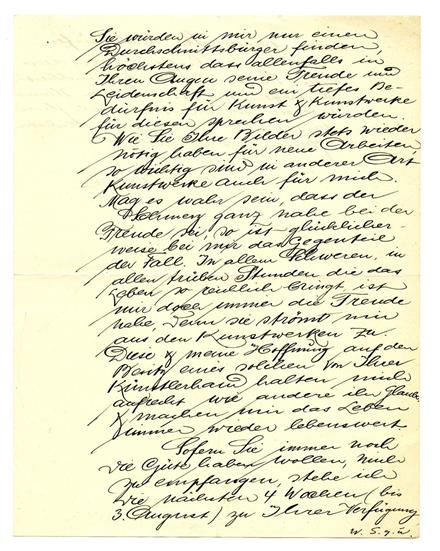 Sie würden in mir nur einen
Durchschnittsbürger finden,
höchstens dass allenfalls in
Ihren Augen seine Freude und
Leidenschaft und ein tiefes Be-
dürfnis für Kunst & Kunstwerke
für diesen sprechen würden.
Wie Sie Ihre Bilder stets wieder
nötig haben für neue Arbeiten,
so wichtig sind in anderer Art
Kunstwerke auch für mich.
Mag es wahr sein, dass der
Schmerz ganz nahe bei der
Freude sei, so ist glücklicher-
weise bei mir das Gegenteil
der Fall. In allem Schweren, in
allen trüben Stunden die das
Leben so reichlich bringt, ist
mir doch immer die Freude
nahe, denn sie strömt mir
aus den Kunstwerken zu.
Diese & meine Hoffnung auf den
Besitz eines solchen von Ihrer
Künstlerhand halten mich
aufrecht wie andere ihr Glauben
& machen mir das Leben
immer wieder lebenswert.
Sofern Sie immer noch
die Güte haben wollen, mich
zu empfangen, stehe ich
die nächsten 4 Wochen (bis
3. August) zu Ihrer Verfügung
w. S. g. u.